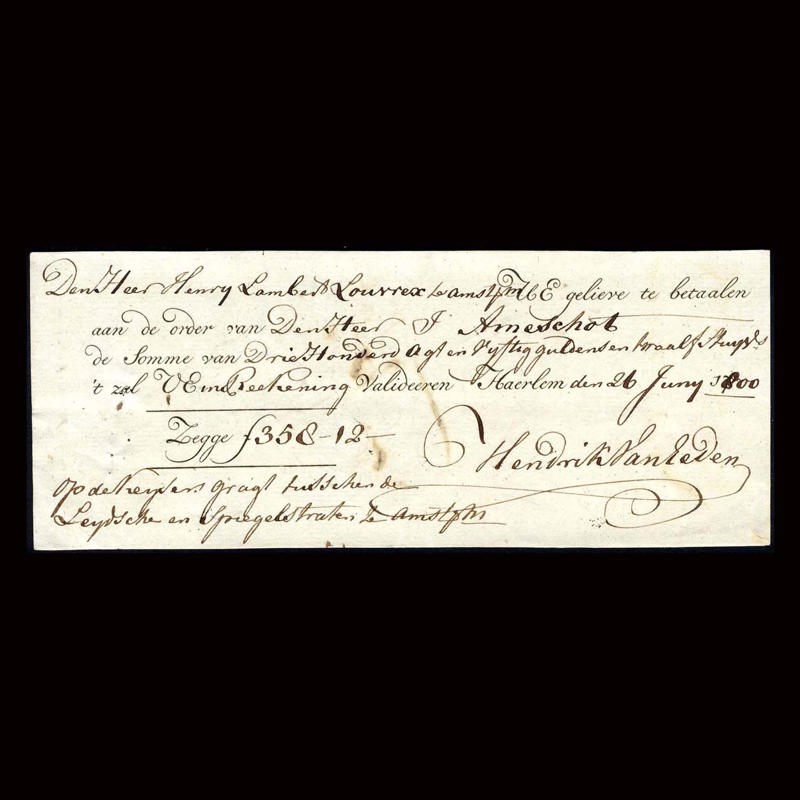 Den Heer Henry Lambert Louvrex te amst/m UE gelieve te betaalen
aan de order van Den Heer J Ameschot
de Somme van Drie Honderd Agt en vyftig guldens en twaalf stuyvs
't zal UE in Reekening Valideeren Haerlem den 26 Juny 1800
Zegge f 358-12-
Hendrik Van Eeden
Op de keysers gragt tusschen de
Leydsche en Spiegelstraten te amst/m